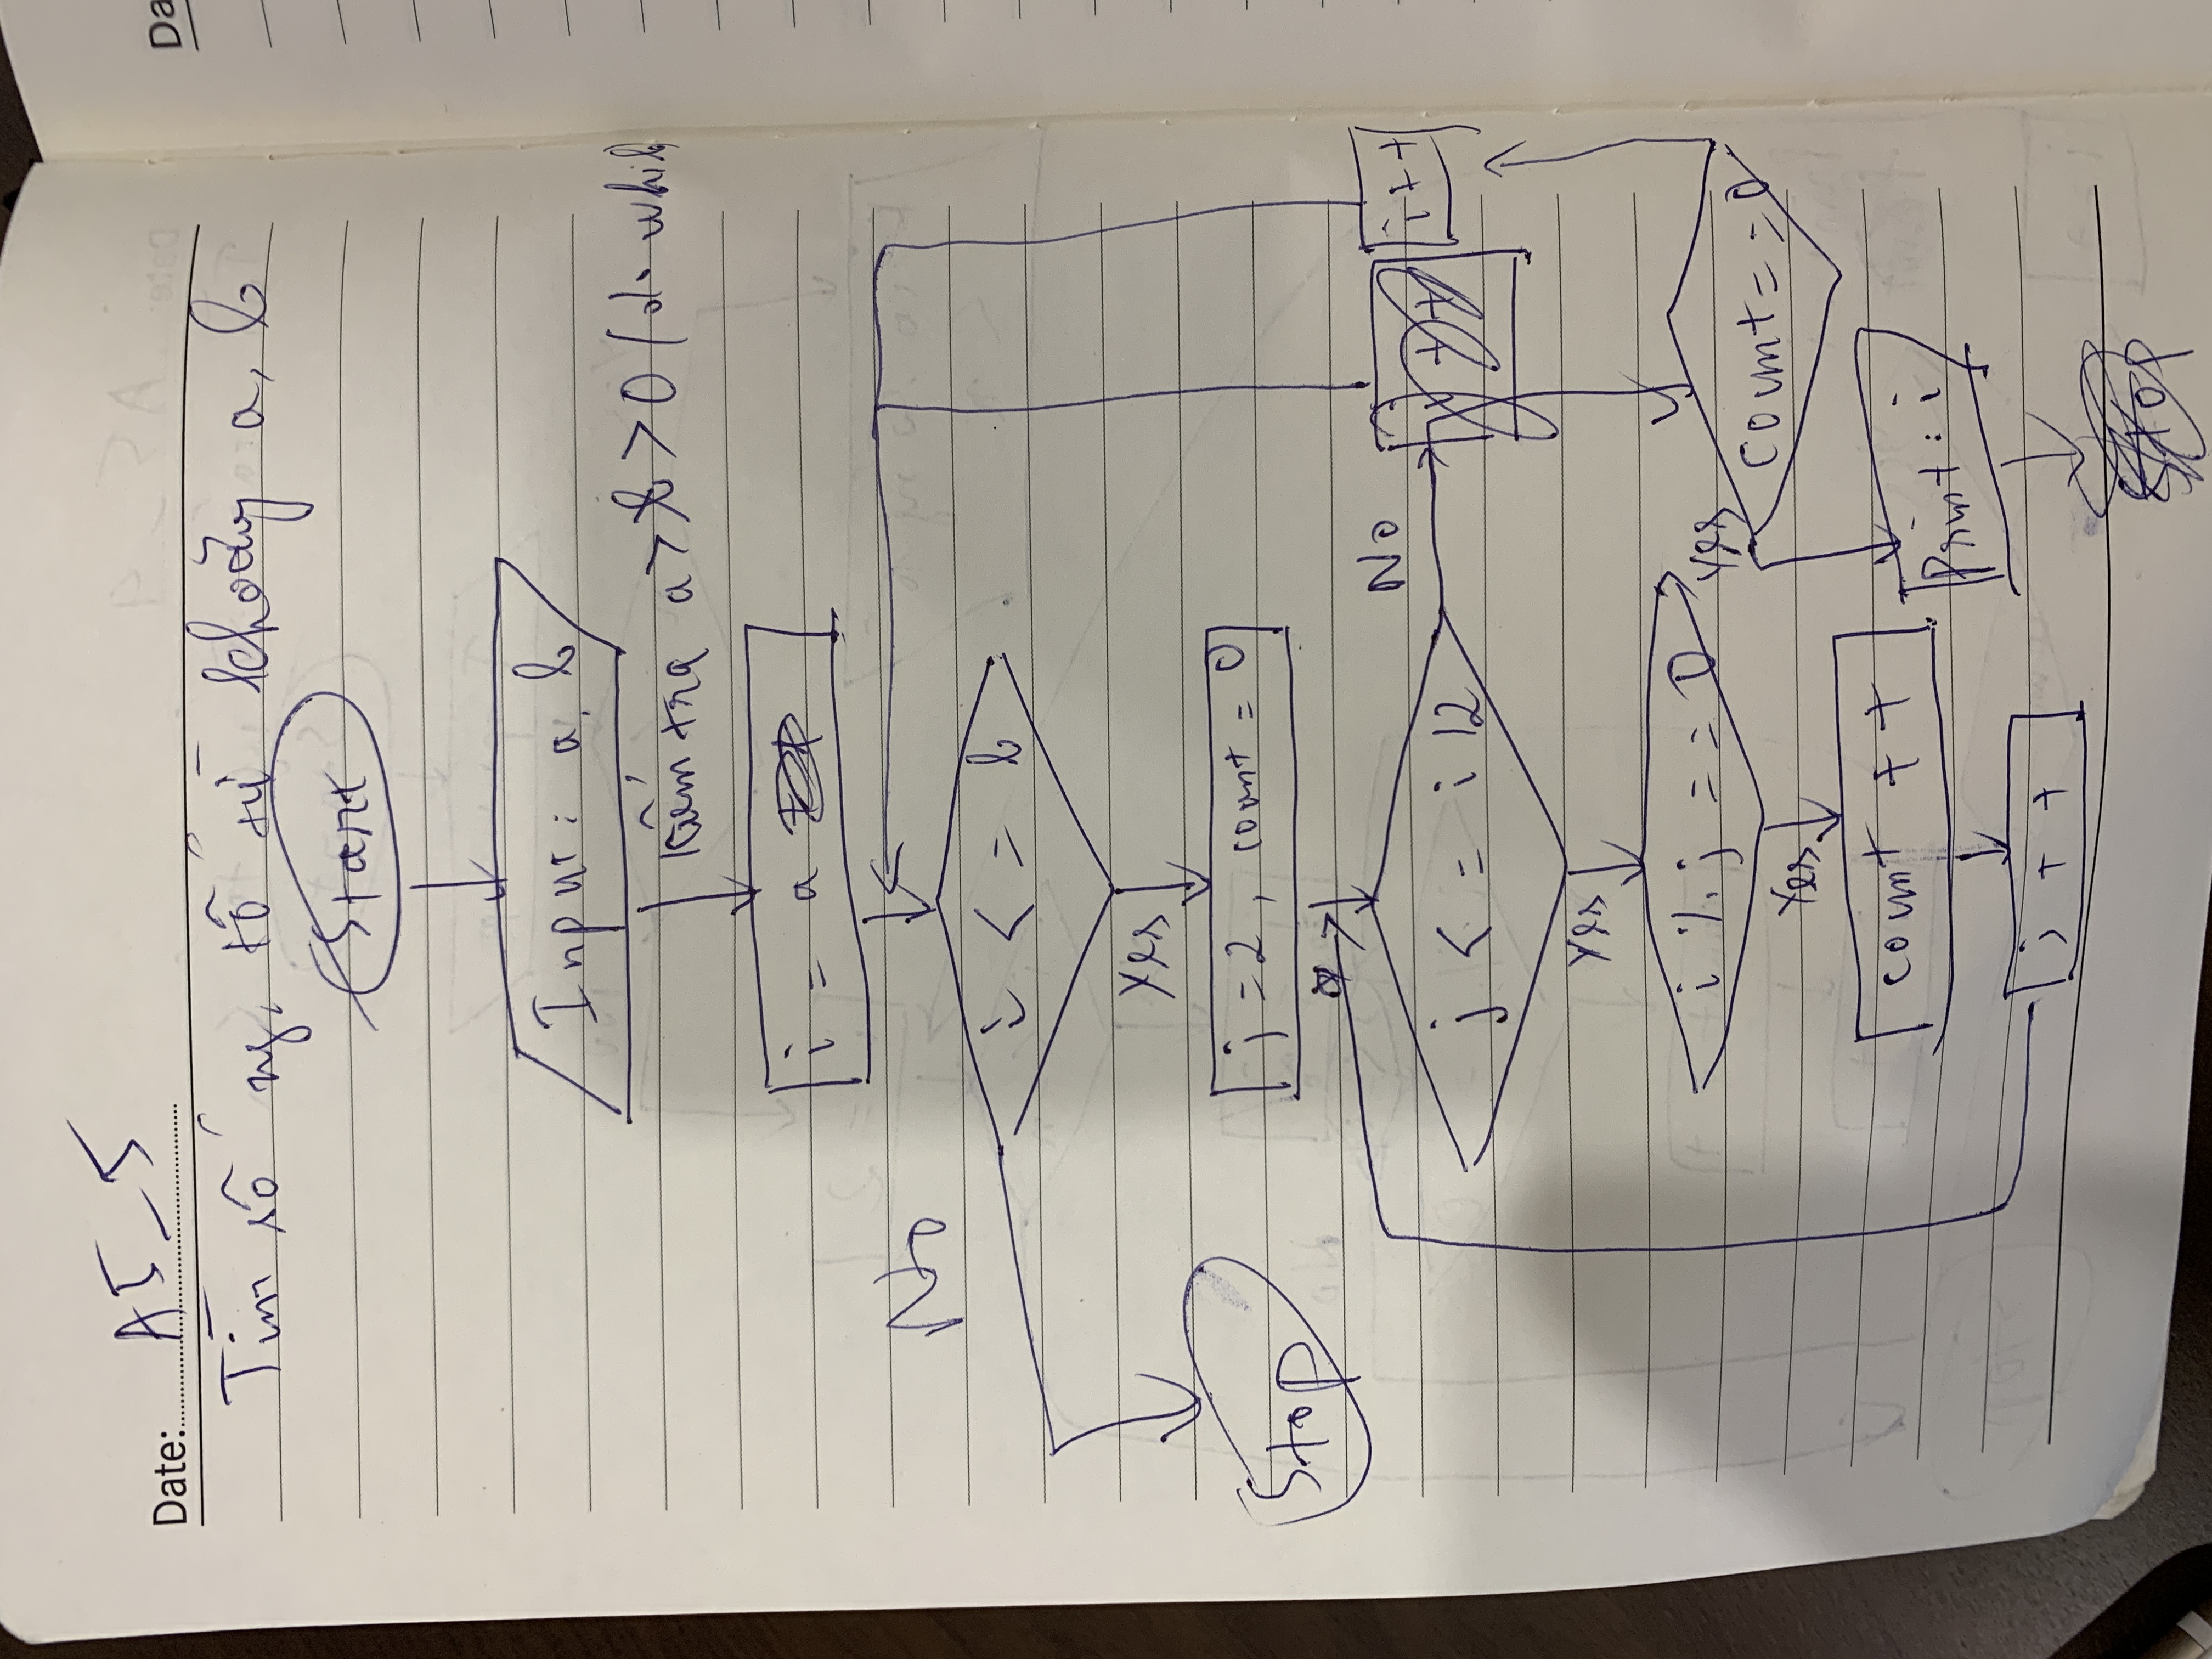 Date: A5_5
Tìm số ng. tố từ khoảng a, b
Start
Input: a, b
kiểm tra a > b > 0 (do while
i = a
No
i < = b
Yes
j = 2, count = 0
Stop
No
i + +
j < = i / 2
Yes
i % j = = 0
Yes
count = = 0
Yes
count + +
Print: i
j + +
Stop
Da